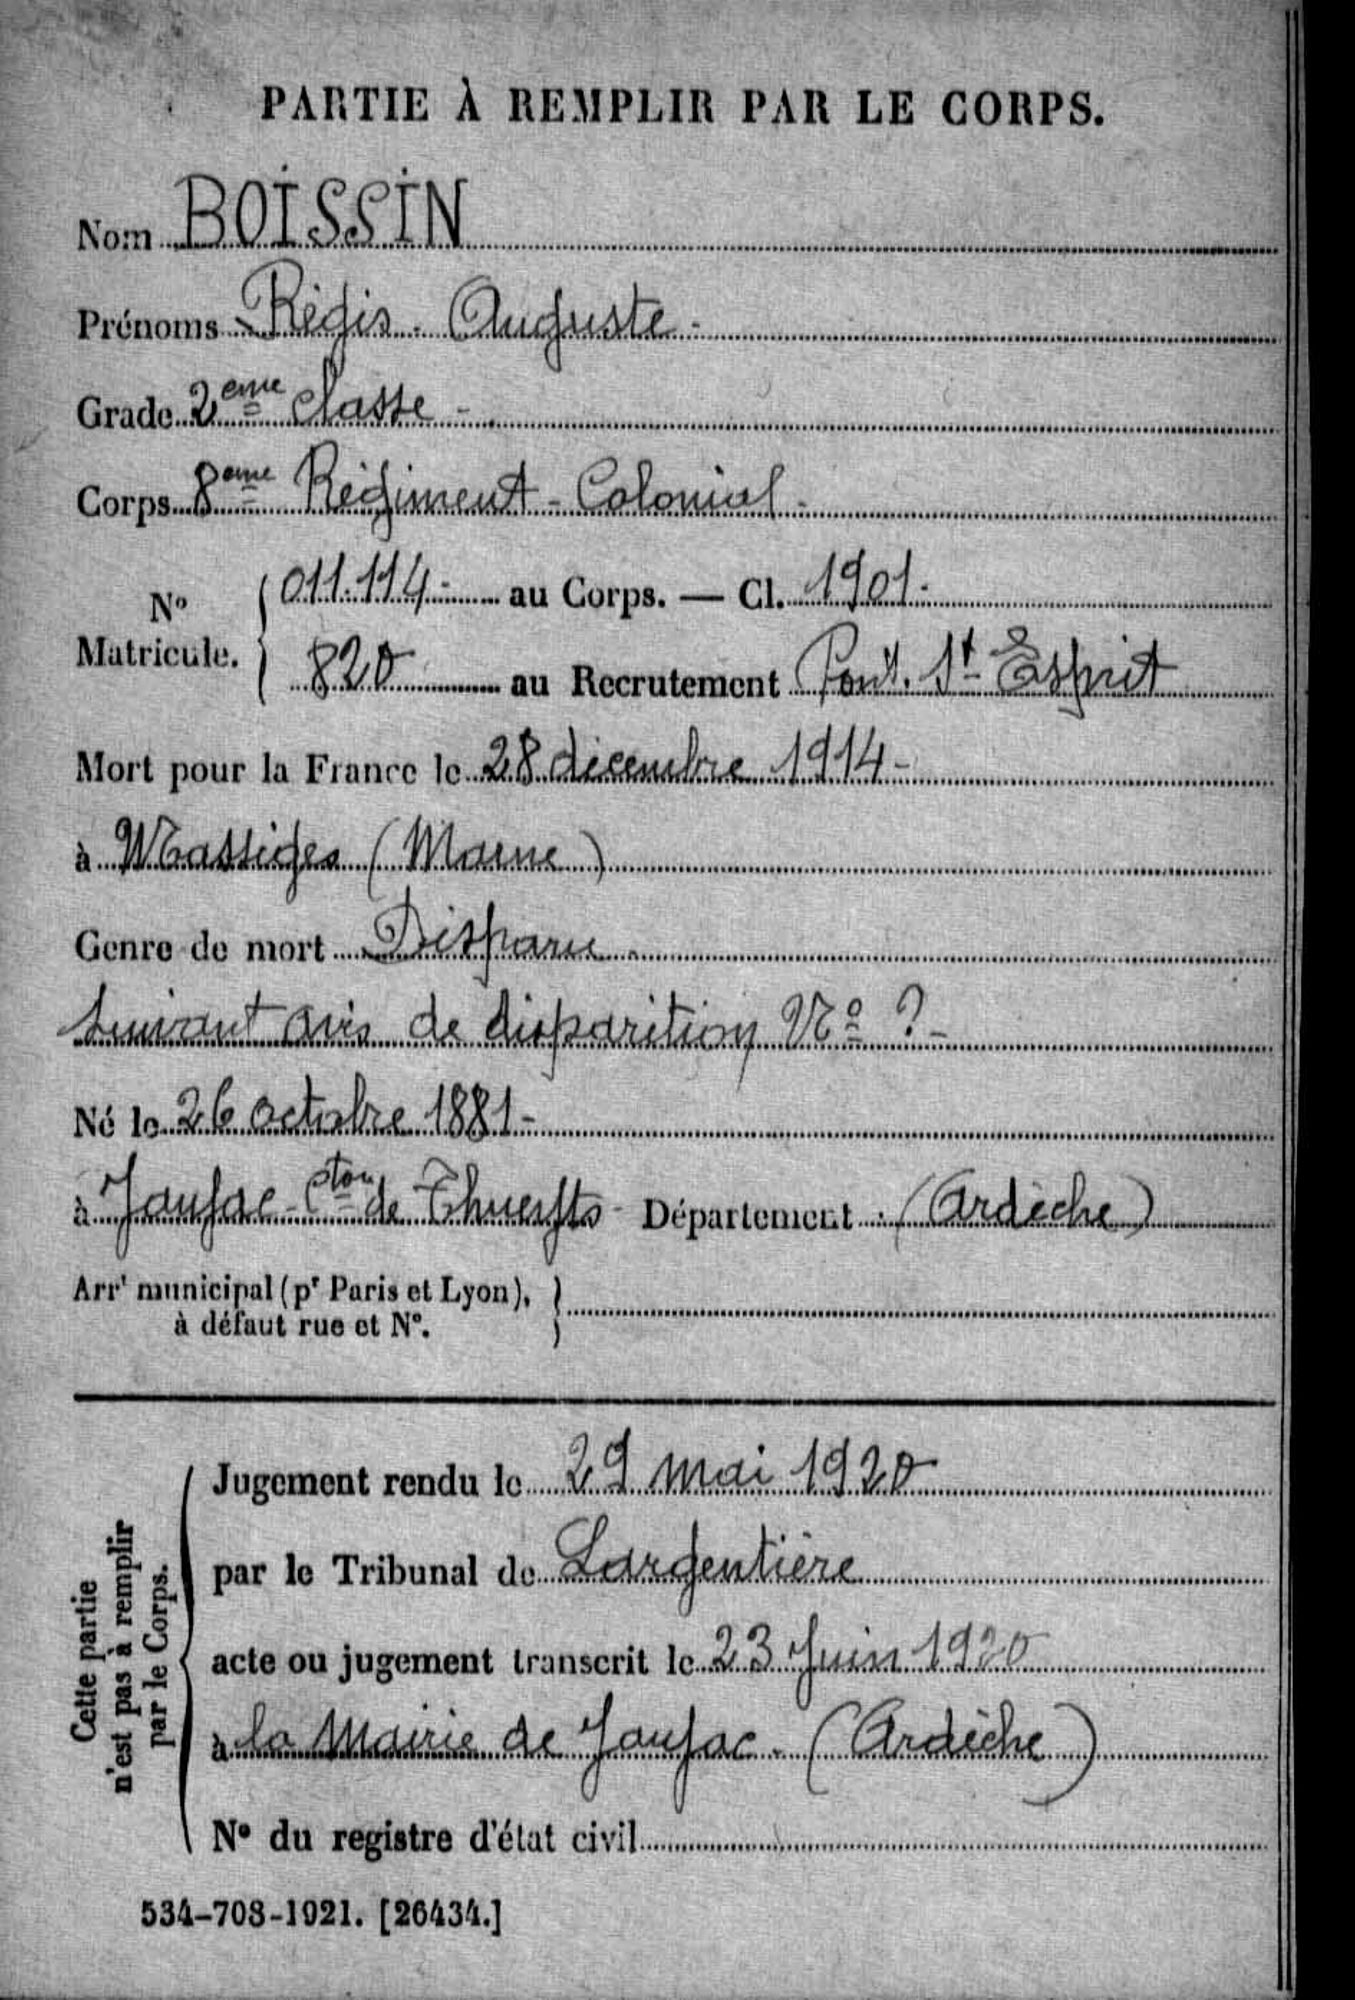 PARTIE À REMPLIR PAR LE CORPS.
Nom BOISSIN
Prénoms Régis. Auguste-
Grade 2eme classe-
Corps 8eme Régiment-Colonial-
N° Matricule. 011.114- au Corps. — Cl. 1901-
820 au Recrutement Pont. St Esprit
Mort pour la France le 28 décembre 1914-
à Massiges (Marne)
Genre de mort Disparu
suivant avis de disparition N° ?-
Né le 26 octobre 1881-
à Jaujac-Cton de Thueyts- Département (Ardèche)
Arrt municipal (pr Paris et Lyon),
à défaut rue et N°.
Cette partie
n'est pas à remplir
par le Corps.
Jugement rendu le 29 mai 1920
par le Tribunal de Largentière
acte ou jugement transcrit le 23 Juin 1920
à la Mairie de Jaujac. (Ardèche)
N° du registre d'état civil
534-708-1921. [26434.]